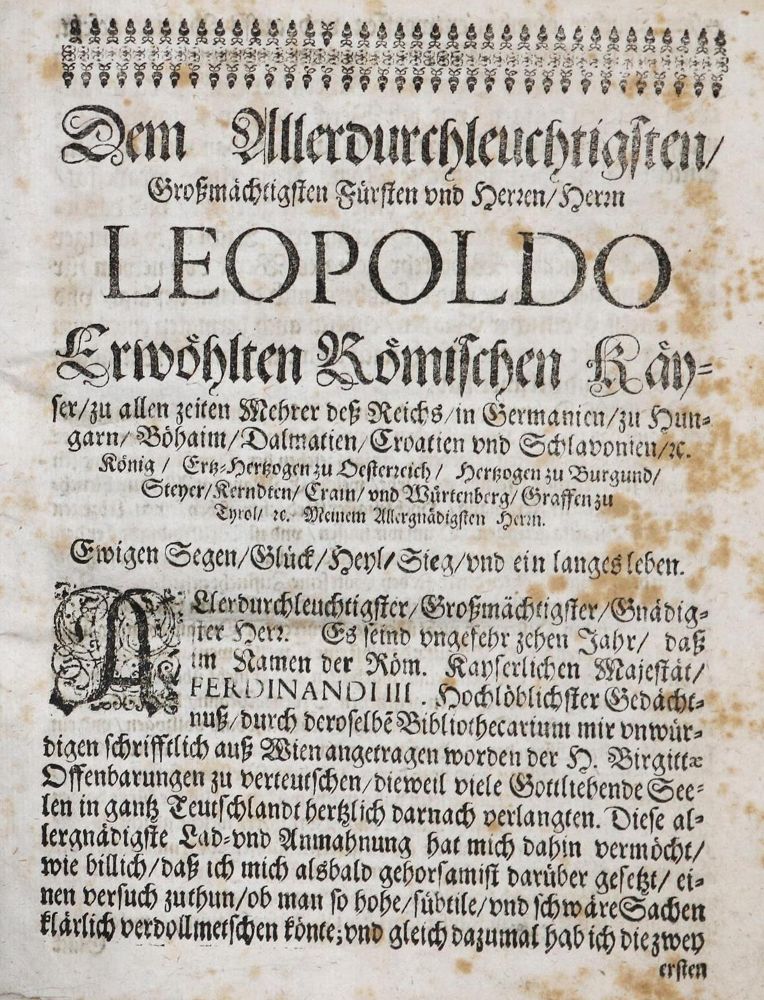 Dem Allerdurchleuchtigsten/
Großmächtigsten Fürsten vnd Herren/Herrn
LEOPOLDO
Erwöhlten Römischen Käy-
ser/zu allen zeiten Mehrer deß Reichs/in Germanien/zu Hun-
garn/Böhaim/Dalmatien/Croatien vnd Schlavonien/ꝛc.
König/ Ertz-Hertzogen zu Oesterreich/ Hertzogen zu Burgund/
Steyer/Kerndten/Crain/vnd Würtenberg/Graffen zu
Tyrol/ ꝛc. Meinem Allergnädigsten Herrn.
Ewigen Segen/Glück/Heyl/Sieg/vnd ein langes leben.
ALlerdurchleuchtigster/Großmächtigster/Gnädig-
ster Herr. Es seind vngefehr zehen Jahr/ daß
im Namen der Röm. Kayserlichen Majestät/
FERDINANDI III. Hochlöblichster Gedächt-
nuß/durch deroselbẽ Bibliothecarium mir vnwür-
digen schrifftlich auß Wien angetragen worden der H. Birgittæ
Offenbarungen zu verteutschen/dieweil viele Gottliebende See-
len in gantz Teutschlandt hertzlich darnach verlangten. Diese al-
lergnädigste Lad-vnd Anmahnung hat mich dahin vermöcht/
wie billich/daß ich mich alsbald gehorsamist darüber gesetzt/ ei-
nen versuch zuthun/ob man so hohe/sübtile/vnd schwäre Sachen
klärlich verdollmetschen könte; vnd gleich dazumal hab ich die zwey
ersten